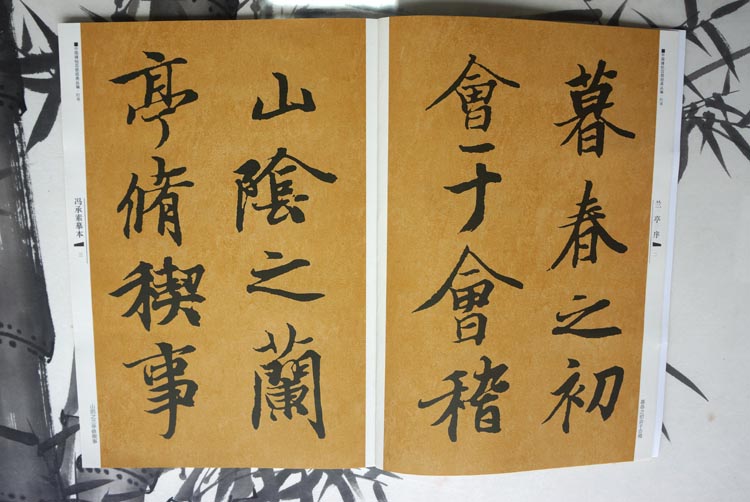 暮春之初
會于會稽
山陰之蘭
亭脩稧事
兰亭序
冯承素摹本